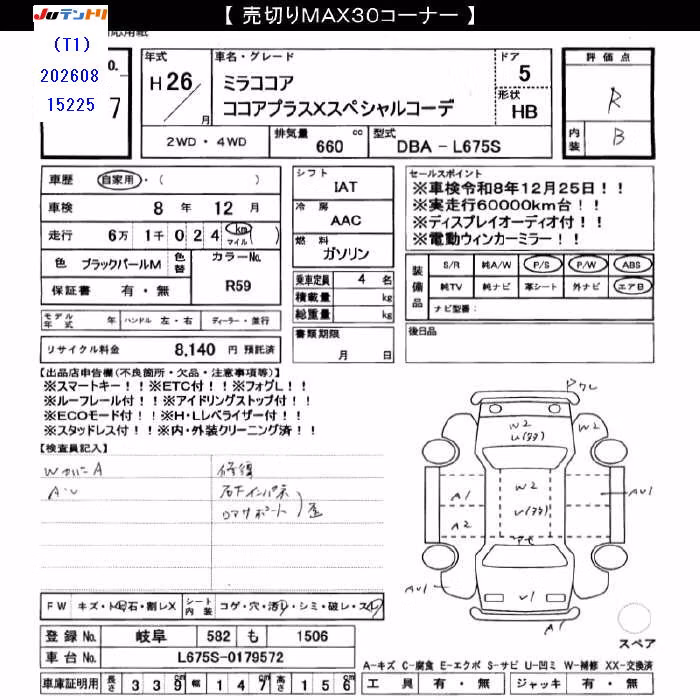 【 売切りMAX30コーナー 】
JUテントリ
(T1)
202608
15225
7
年式
H 26/
月
車名・グレード
ミラココア
ココアプラスXスペシャルコーデ
ドア
5
形状
HB
評価点
R
内装
B
2WD・4WD
排気量
660 cc
型式
DBA - L675S
車歴
自家用・( )
車検
8 年 12 月
走行
6万 1千 0 2 4 km マイル ( )
色
ブラックパールM
色替
カラーNo.
R59
保証書
有・無
シフト
IAT
冷房
AAC
燃料
ガソリン
乗車定員 4 名
積載量 kg
総重量 kg
書類期限
月 日
セールスポイント
※車検令和8年12月25日!!
※実走行60000km台!!
※ディスプレイオーディオ付!!
※電動ウィンカーミラー!!
装備品
S/R 純A/W P/S P/W ABS
純TV 純ナビ 革シート 外ナビ エアB
ナビ型番:
モデル年式 年 ハンドル 左・右 ディーラー・並行
リサイクル料金 8,140 円 預託済
後日品
【出品店申告欄(不良箇所・欠品・注意事項等)】
※スマートキー!!※ETC付!!※フォグL!!
※ルーフレール付!!※アイドリングストップ付!!
※ECOモード付!!※H・Lレベライザー付!!
※スタッドレス付!!※内・外装クリーニング済!!
【検査員記入】
A・U
修復
W2
W2
A1
W2
AU1
A2
AU1
U1
A1
FW キズ・ト石・割レX
シート内装
コゲ・穴・汚レ・シミ・破レ・スレ
登録No. 岐阜 582 も 1506
車台No. L675S-0179572
車庫証明用 長さ 3 3 9 幅 1 4 7 高さ 1 5 6
スペア
A-キズ C-腐食 E-エクボ S-サビ U-凹ミ W-補修 XX-交換済
工具 有・無 ジャッキ 有・無